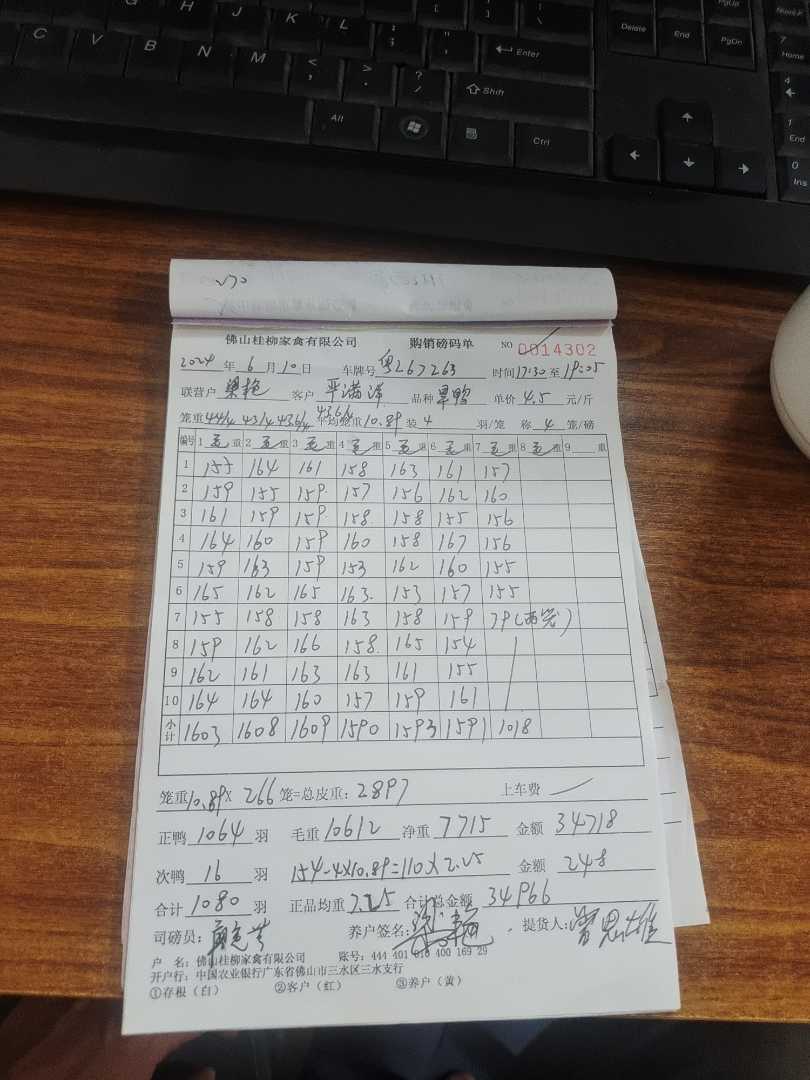 C V B N M H J K L Enter Shift Alt Ctrl
Delete End PgDn PgUp Home End Ins
佛山桂柳家禽有限公司 购销磅码单 NO 0014302
2024 年 6 月 10 日 车牌号 粤267263 时间 17:30 至 19:05
联营户 梁艳 客户 平满洋 品种 旱鸭 单价 4.5 元/斤
笼重 44/4 43/4 43.6/4 43.6/4 平均笼重 10.89 装 4 羽/笼 称 4 笼/磅
编号 1 毛 重 2 毛 重 3 毛 重 4 毛 重 5 毛 重 6 毛 重 7 毛 重 8 毛 重 9 重
1 157 164 161 158 163 161 157
2 159 155 159 157 156 162 160
3 161 159 159 158 158 155 156
4 164 160 159 160 158 167 156
5 159 163 159 153 162 160 155
6 165 162 165 163 153 157 155
7 155 158 158 163 158 159 79(两笼)
8 159 162 166 158 165 154
9 162 161 163 163 161 155
10 164 164 160 157 159 161
小计 1603 1608 1609 1590 1593 1591 1018
笼重 10.89 X 266 笼=总皮重: 2897 上车费
正鸭 1064 羽 毛重 10612 净重 7715 金额 34718
次鸭 16 羽 154-4×10.89=110×2.25 金额 248
合计 1080 羽 正品均重 7.25 合计总金额 34966
司磅员: 养户签名: 提货人:
户 名: 佛山桂柳家禽有限公司 账号: 444 401 010 400 169 29
开户行: 中国农业银行广东省佛山市三水区三水支行
①存根(白) ②客户(红) ③养户(黄)